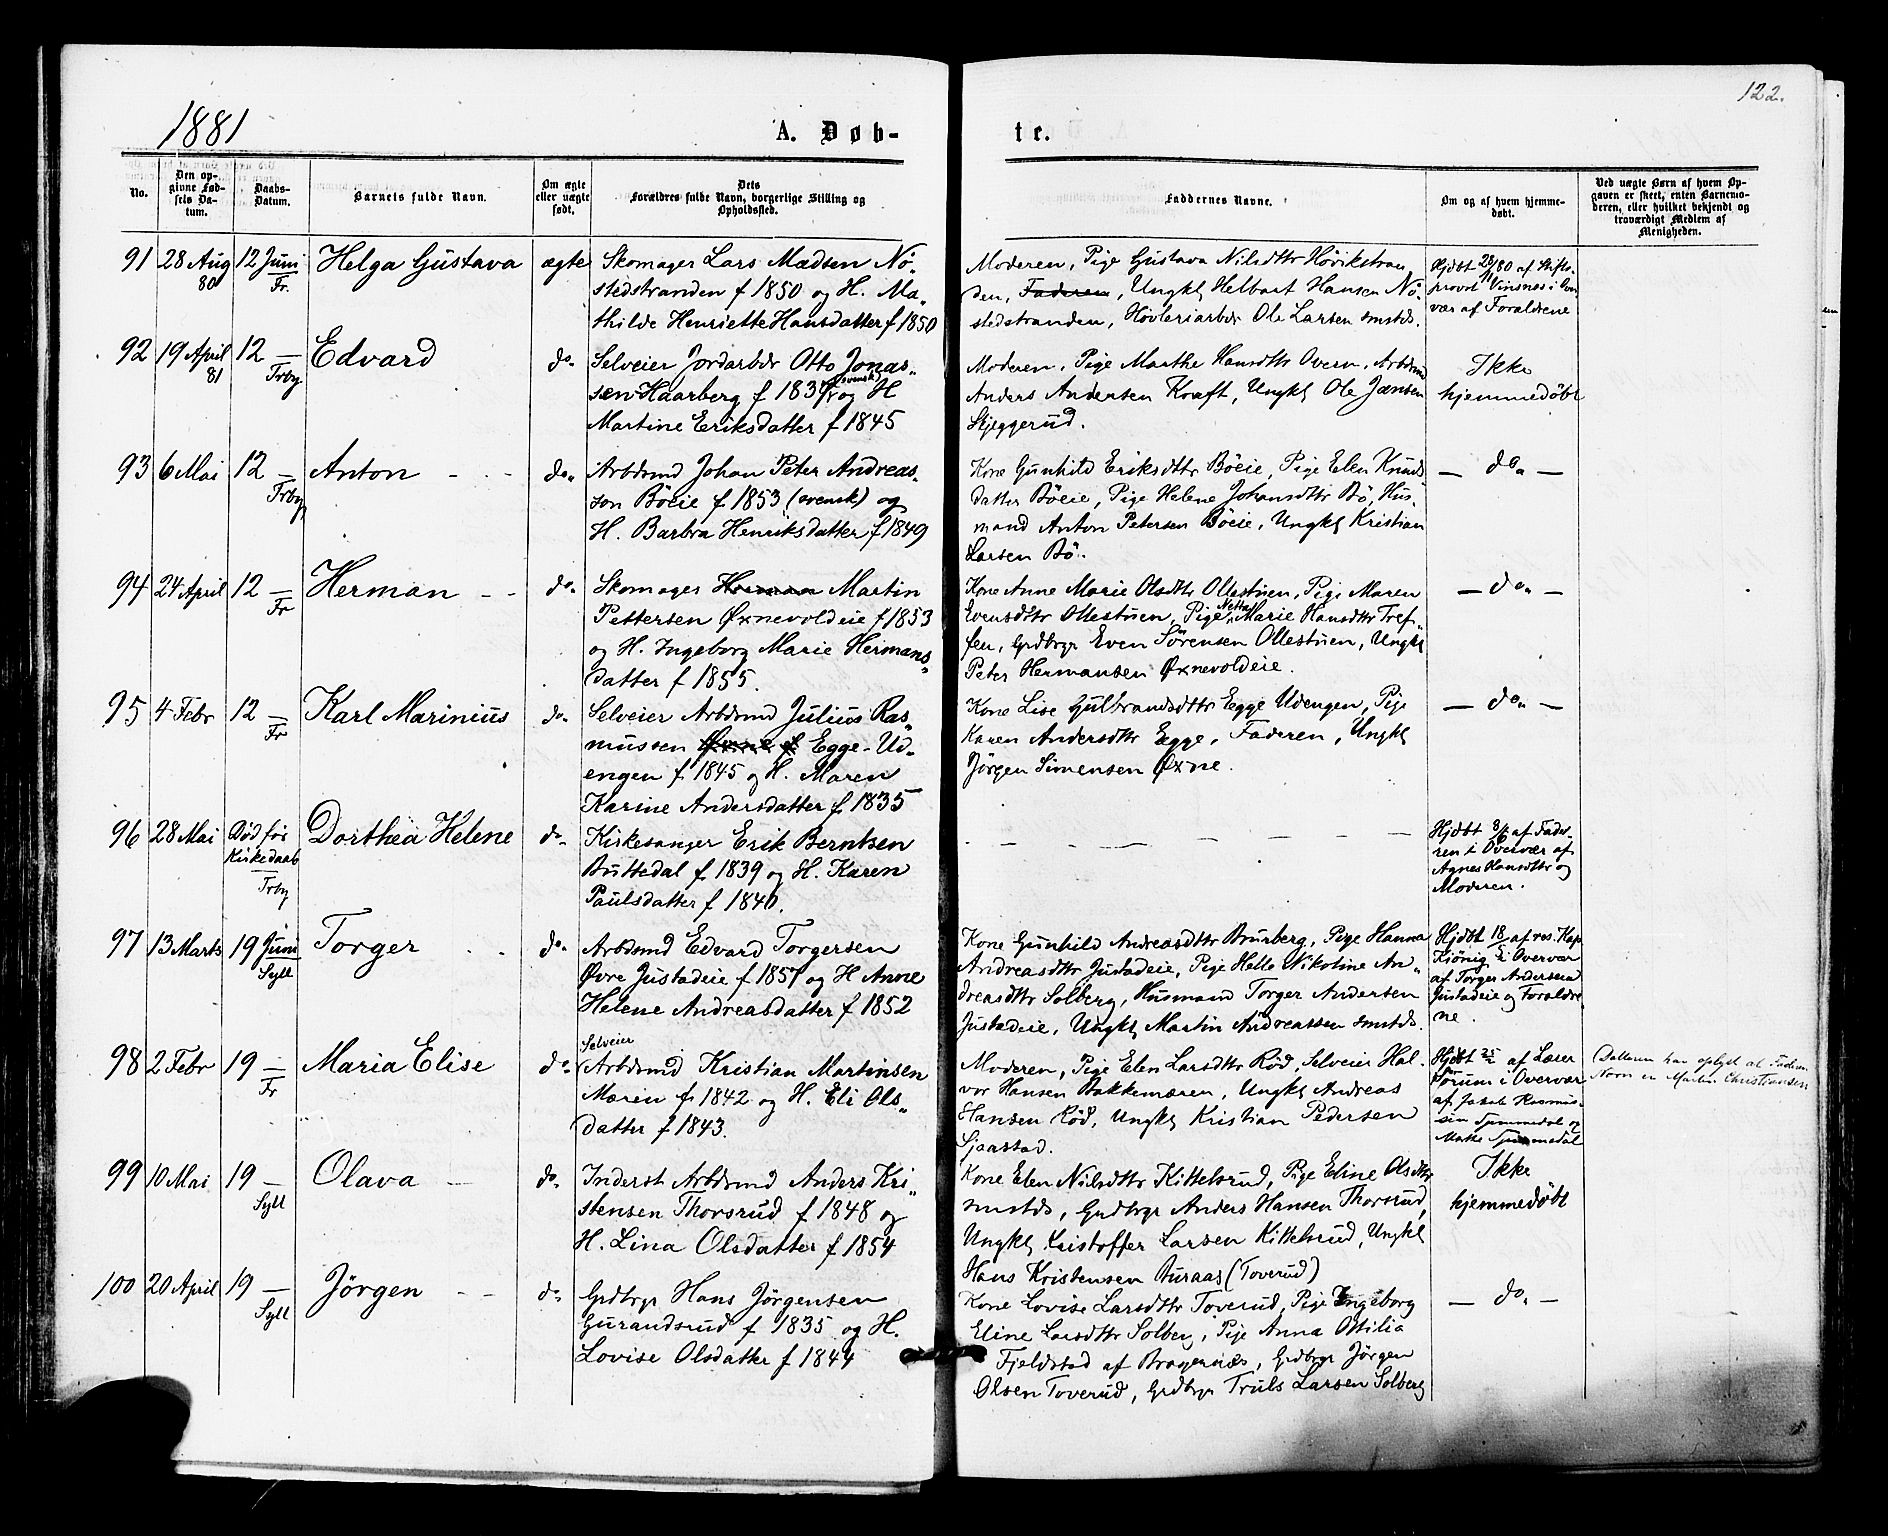 122.
1881
A. Døb-
te.
No.
Den op-
givne Fød-
sels Da-
tum.
Daabs-
Datum.
Barnets fulde Navn.
Om ægte
eller uægte
født.
Dets
Forældres fulde Navn, borgerlige Stilling og
Opholdssted.
Faddernes Navne.
Om og af hvem hjemme-
døbt.
Ved uægte Børn af hvem Op-
gaven er skeet, enten Barnemo-
deren, eller hvilket bekjendt og
troværdigt Medlem af
Menigheden.
91 28 Aug 80 12 Juni Fr. Helga Gustava ægte
Skomager Lars Madsen Nö-
stedstranden f 1850 og H. Ma-
thilde Henriette Hansdatter f 1850
Moderen, Pige Gustava Nilsdttr Hörikstran
den, Faderen, Ungkl Helbart Hansen Nö-
stedstranden, Hövleriarbdr Ole Larsen smstds.
Hjdbt 28/11 80 af Stifts-
provst Vinsnes i Over
vær af Forældrene
92 19 April 81 12 — Frby. Edvard do.
Selveier Jordarbdr Otto Jonas-
sen Haarberg f 1837 (svensk) og H
Martine Eriksdatter f 1845
Moderen, Pige Marthe Hansdttr Overn, Arbdsmd
Anders Andersen Kraft, Ungkl Ole Jensen
Skjeggerud.
Ikke
hjemmedøbt
93 6 Mai 12 — Frby Anton do.
Arbdsmd Johan Peter Andreas-
son Böeie f 1853 (svensk) og
H. Barbra Henriksdatter f 1849
Kone Gunhild Eriksdttr Böeie, Pige Elen Knuds
datter Böeie, Pige Helene Johansdttr Bö, Hus
mand Anton Petersen Böeie, Ungkl Kristian
Larsen Bö.
— do. —
94 24 April 12 — Fr Herman do.
Skomager Herman Martin
Pettersen Øxnevoldeie f 1853
og H. Ingeborg Marie Hermans-
datter f 1855.
Kone Anne Marie Olsdttr Ollestuen, Pige Maren
Evensdttr Ollestuen, Pige Netta Marie Hansdttr Tref-
fen, Grdbrgr Even Sörensen Ollestuen, Ungkl
Peter Hermansen Øxnevoldeie.
— do. —
95 4 Febr 12 — Fr Karl Marinius do.
Selveier Arbdsmd Julius Ras-
mussen Øxne f Egge-Ud-
engen f 1845 og H. Maren
Karine Andersdatter f 1835
Kone Lise Gulbrandsdttr Egge Udengen, Pige
Karen Andersdttr Egge, Faderen, Ungkl
Jörgen Simensen Øxne.
— do. —
96 28 Mai Död för Kirkedaab Frby Dorthea Helene do.
Kirkesanger Erik Berntsen
Buttedal f 1839 og H. Karen
Paulsdatter f 1840.
Hjdbt 8/6 af Fade-
ren i Overvær af
Agnes Hansdttr og
Moderen.
97 13 Marts 19 Juni Syll Torger do.
Arbdsmd Edvard Torgersen
Øvre Justadeie f 1857 og H Anne
Helene Andreasdatter f 1852
Kone Gunhild Andreasdttr Brurberg, Pige Hanna
Andreasdttr Justadeie, Pige Helle Nikoline An-
dreasdttr Solberg, Husmand Torger Andersen
Justadeie, Ungkl Martin Andreassen smstds.
Hjdbt 18/5 af res. Kap
Kiönig i Overvær
af Torger Andersen
Justadeie og Forældre
ne.
98 2 Febr 19 — Fr Maria Elise do.
Selveier
Arbdsmd Kristian Martinsen
Mæren f 1842 og H. Eli Ols-
datter f 1843.
Moderen, Pige Elen Larsdttr Röd, Selveier Hal-
vor Hansen Bakkemæren, Ungkl Andreas
Hansen Röd, Ungkl Kristian Pedersen
Sjaastad.
Hjdbt 25/2 af Lærer
Sörum i Overvær
af Jakob Rasmus-
sen
Datteren har oplyst at Faderens
Navn er Martin Christiansen
99 10 Mai 19 — Syll Olava do.
Inderst Arbdsmd Anders Kri-
stensen Thorsrud f 1848 og
H. Lina Olsdatter f 1854
Kone Elen Nilsdttr Kittelsrud, Pige Eline Olsdttr
smstds, Grdbrgr Anders Hansen Thorsrud,
Ungkl Kristoffer Larsen Kittelsrud, Ungkl
Hans Kristensen Buraas (Toverud)
Ikke
hjemmedöbt
100 20 April 19 — Syll Jörgen do.
Grdbrgr Hans Jörgensen
Gurandsrud f 1835 og H.
Lovise Olsdatter f 1844
Kone Lovise Larsdttr Toverud, Pige Ingeborg
Eline Larsdttr Solberg, Pige Anna Ottilia
Fjeldstad af Bragernæs, Grdbrgr Jörgen
Olsen Toverud, Grdbrgr Truls Larsen Solberg
— do. —